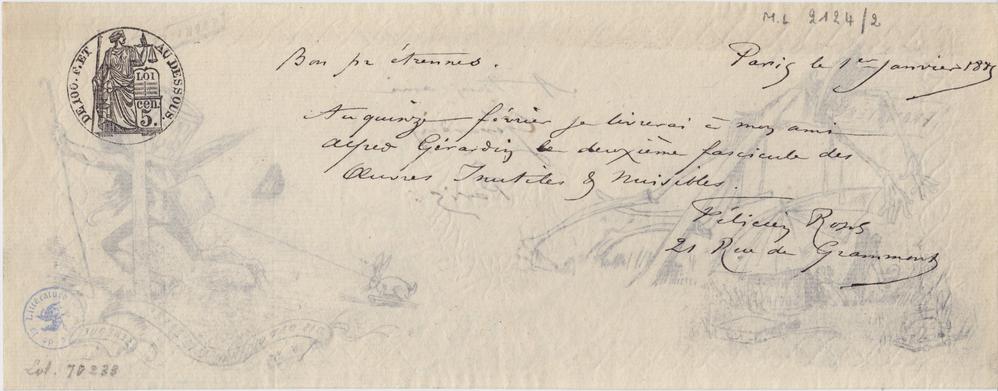 M.L 2124/2
DE 100. F. ET AU DESSOUS.
LOI
cen.
5.
Bon pr étrennes.
Paris le 1er Janvier 187
Au quinze février je livrerai à mon ami
Alfred Gérardin le deuxième fascicule des
Œuvres Inutiles & Nuisibles.
Félicien Rops
21 Rue de Grammont
Littérature
Lol. 70233